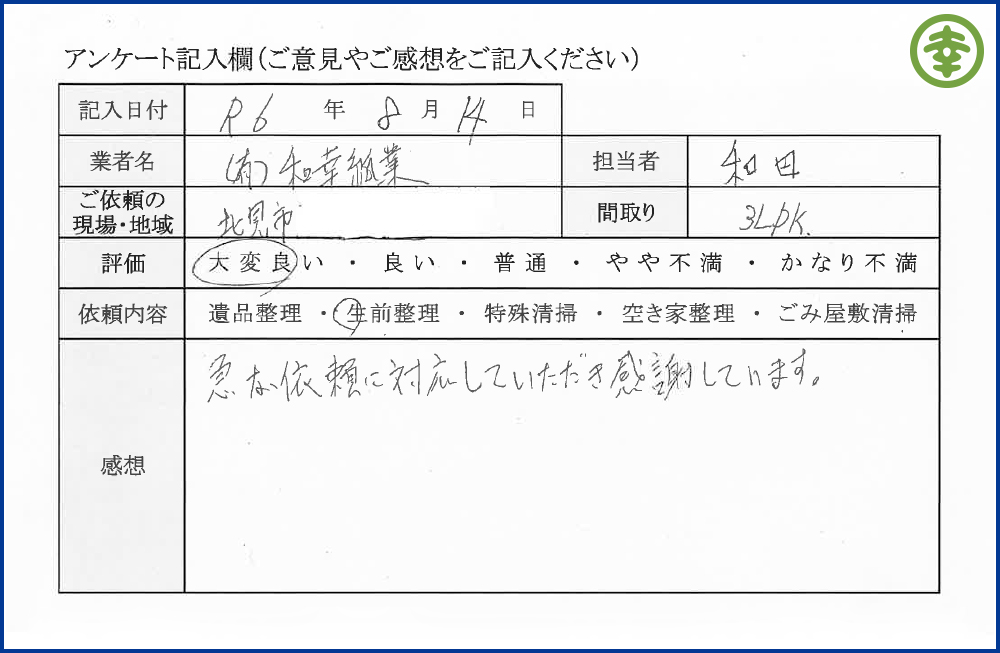 幸
アンケート記入欄（ご意見やご感想をご記入ください）
記入日付 R6 年 8 月 14 日
業者名 (有)和幸紙業 担当者 和田
ご依頼の現場・地域 北見市 間取り 3LDK.
評価 大変良い ・ 良い ・ 普通 ・ やや不満 ・ かなり不満
依頼内容 遺品整理 ・ 生前整理 ・ 特殊清掃 ・ 空き家整理 ・ ごみ屋敷清掃
感想 急な依頼に対応していただき感謝しています。